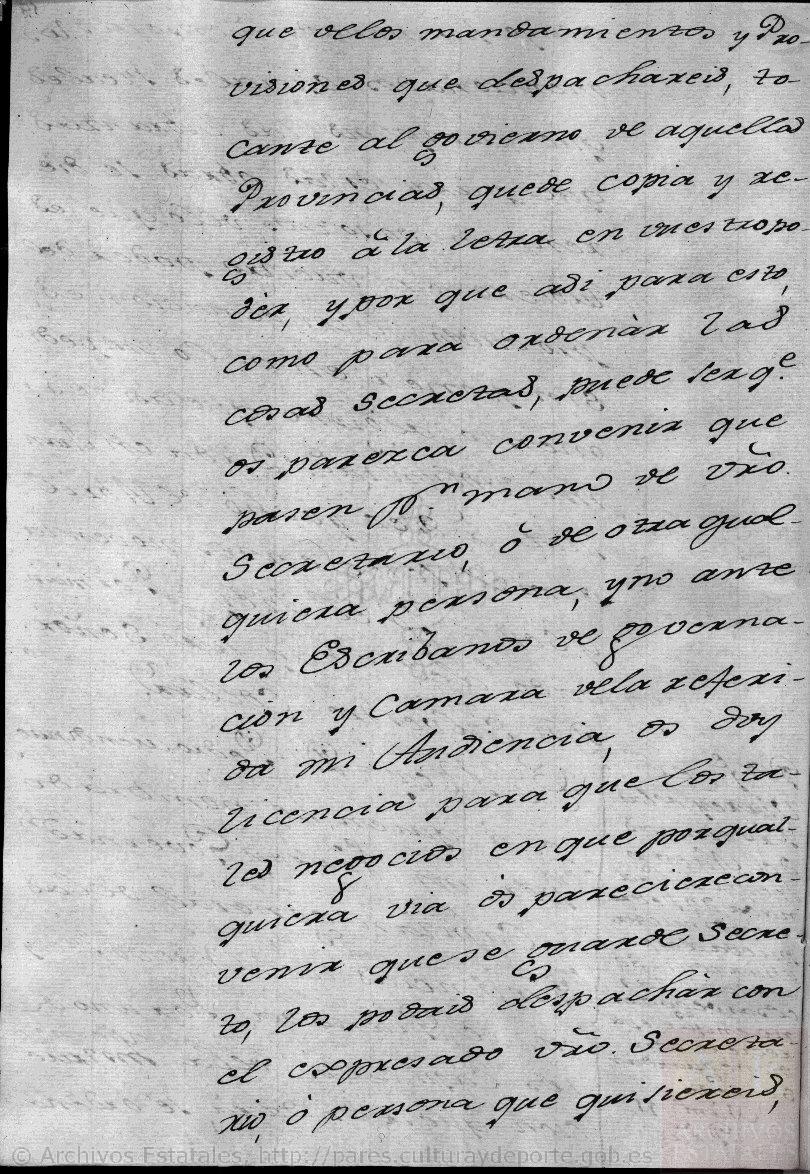 que de los mandamientos y Pro-
visiones que despachareis, to-
cante al govierno de aquellas
Provincias, quede copia y re-
gistro â la letra en vuestro po-
der, y por que asi para esto,
como para ordenàr las
cosas Secretas, puede ser q.e
os parezca convenir que
pasen pr. mano de vr̃o.
Secretario, ô de otra qual-
quiera persona, y no ante
los Escribanos de governa-
ciòn y Camara de la referi-
da mi Audiencia, os doy
licencia para que los ta-
les negocios en que por qual-
quiera via ós pareciere con-
venir que se guarde Secre-
to, los podais despachàr con
el expresado vr̃o. Secreta-
rio, ò persona que quisiereis,
© Archivos Estatales, http://pares.culturaydeporte.gob.es